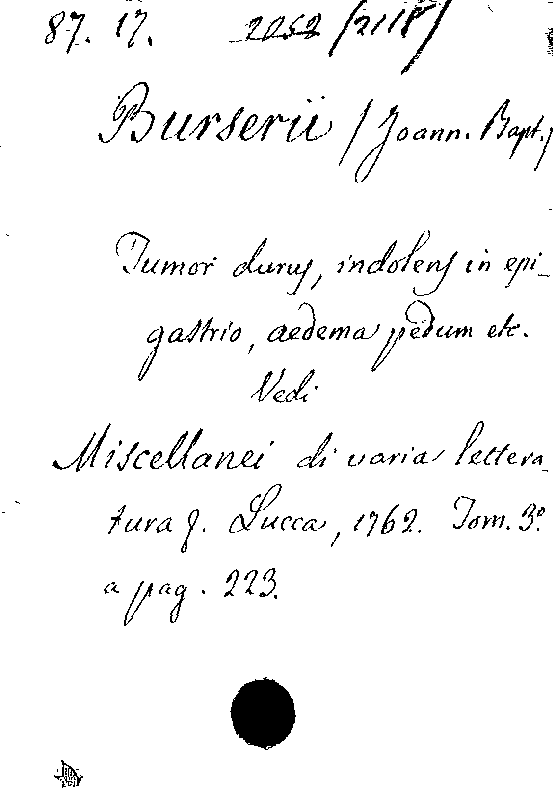 87. 17. 2052 /2118/
Burserii /Joann. Bapt./
Tumor durus, indolens in epi-
gastrio, aedema pedum etc.
Vedi
Miscellanei di varia lettera-
tura 8. Lucca, 1762. Tom. 3º
a pag. 223.